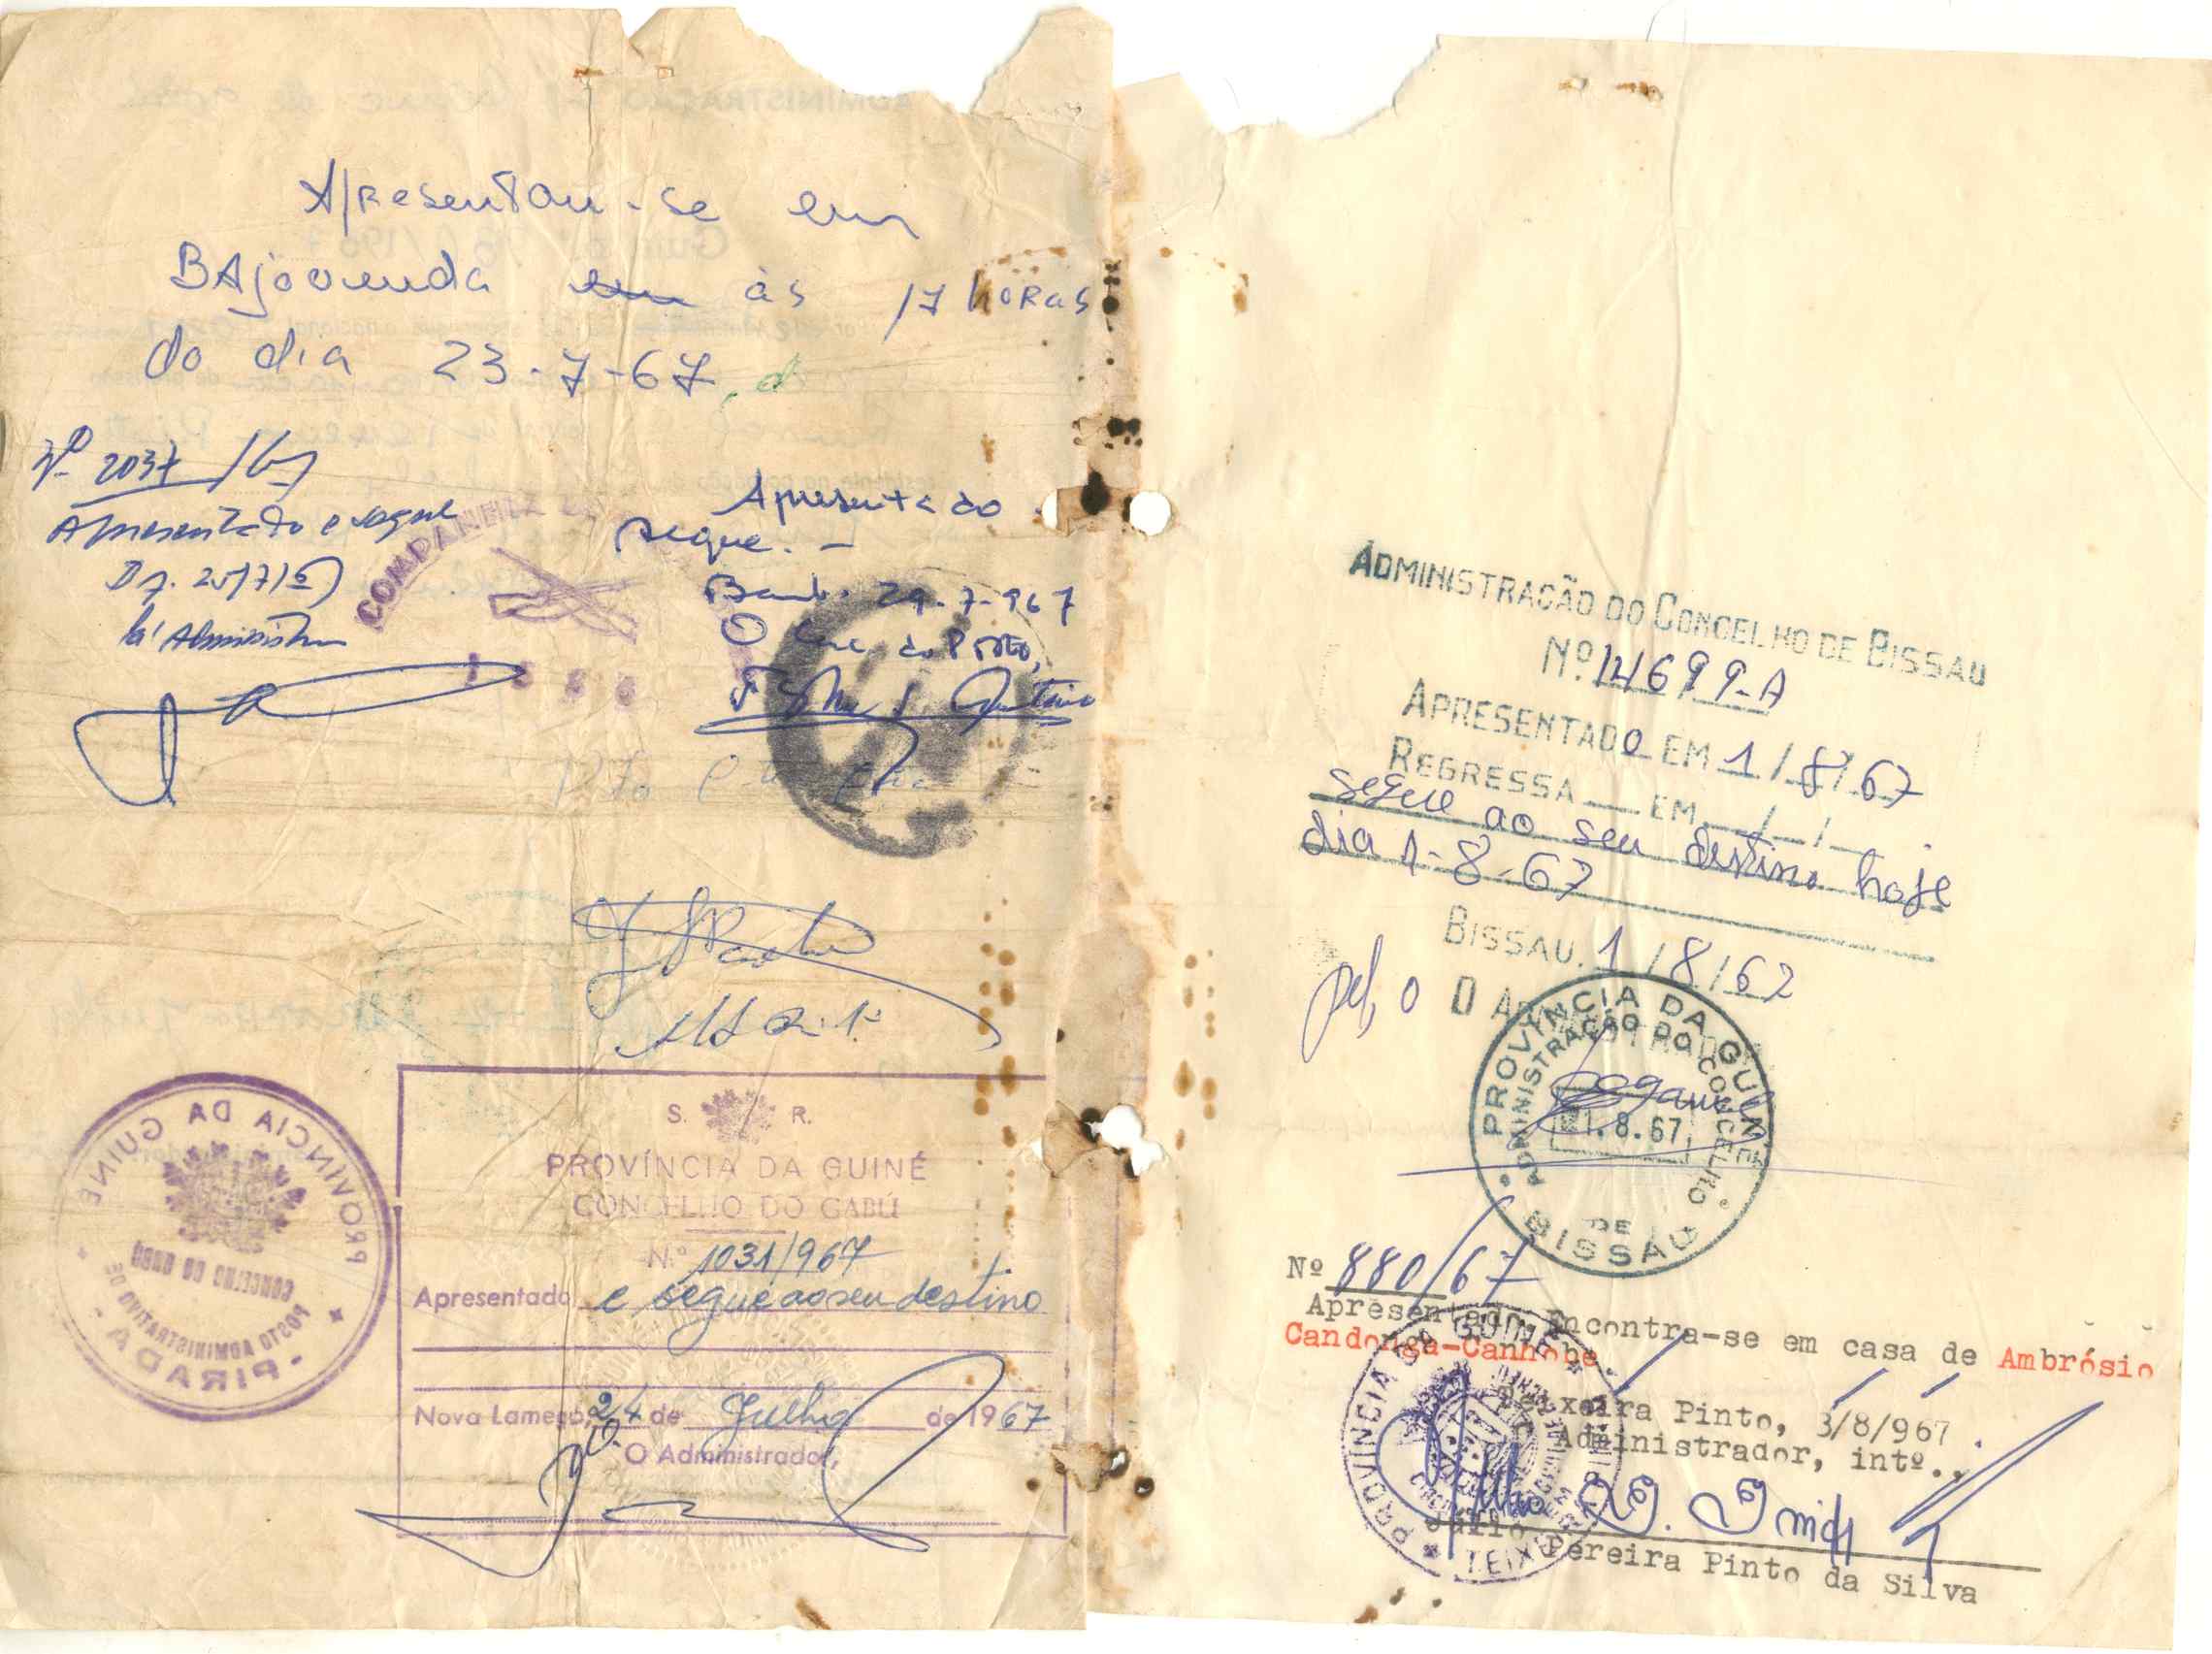 Apresentou-se em
BAjocunda em às 17 horas
do dia 23-7-67
Nº 2037/67
Apresentado e segue
25/7/67
O Administrador
COMPANHIA DE
1586
Apresentado
segue. -
Bamb. 29-7-967
O do Posto,
S. R.
PROVÍNCIA DA GUINÉ
CONCELHO DO GABÚ
N.º 1031/967
Apresentado e segue ao seu destino
Nova Lamego, 24 de Julho de 1967
O Administrador,
PROVINCIA DA GUINÉ
CONCELHO DO GABU
POSTO ADMINISTRATIVO DE
- PIRADA -
ADMINISTRAÇÃO DO CONCELHO DE BISSAU
Nº 14699-A
APRESENTADO EM 1/8/67
REGRESSA EM / /
segue ao seu destino hoje
dia 1-8-67
BISSAU, 1/8/67
pel, o O ADMINISTRADOR
PROVÍNCIA DA GUINÉ
ADMINISTRAÇÃO DO CONCELHO
1.8.67
DE
BISSAU
Nº 880/67
Apresentado. Encontra-se em casa de Ambrósio
Candonga-Canhobe
Teixeira Pinto, 3/8/967.
O Administrador, intº.,
Júlio Pereira Pinto da Silva
PROVINCIA DA GUINÉ
TEIX